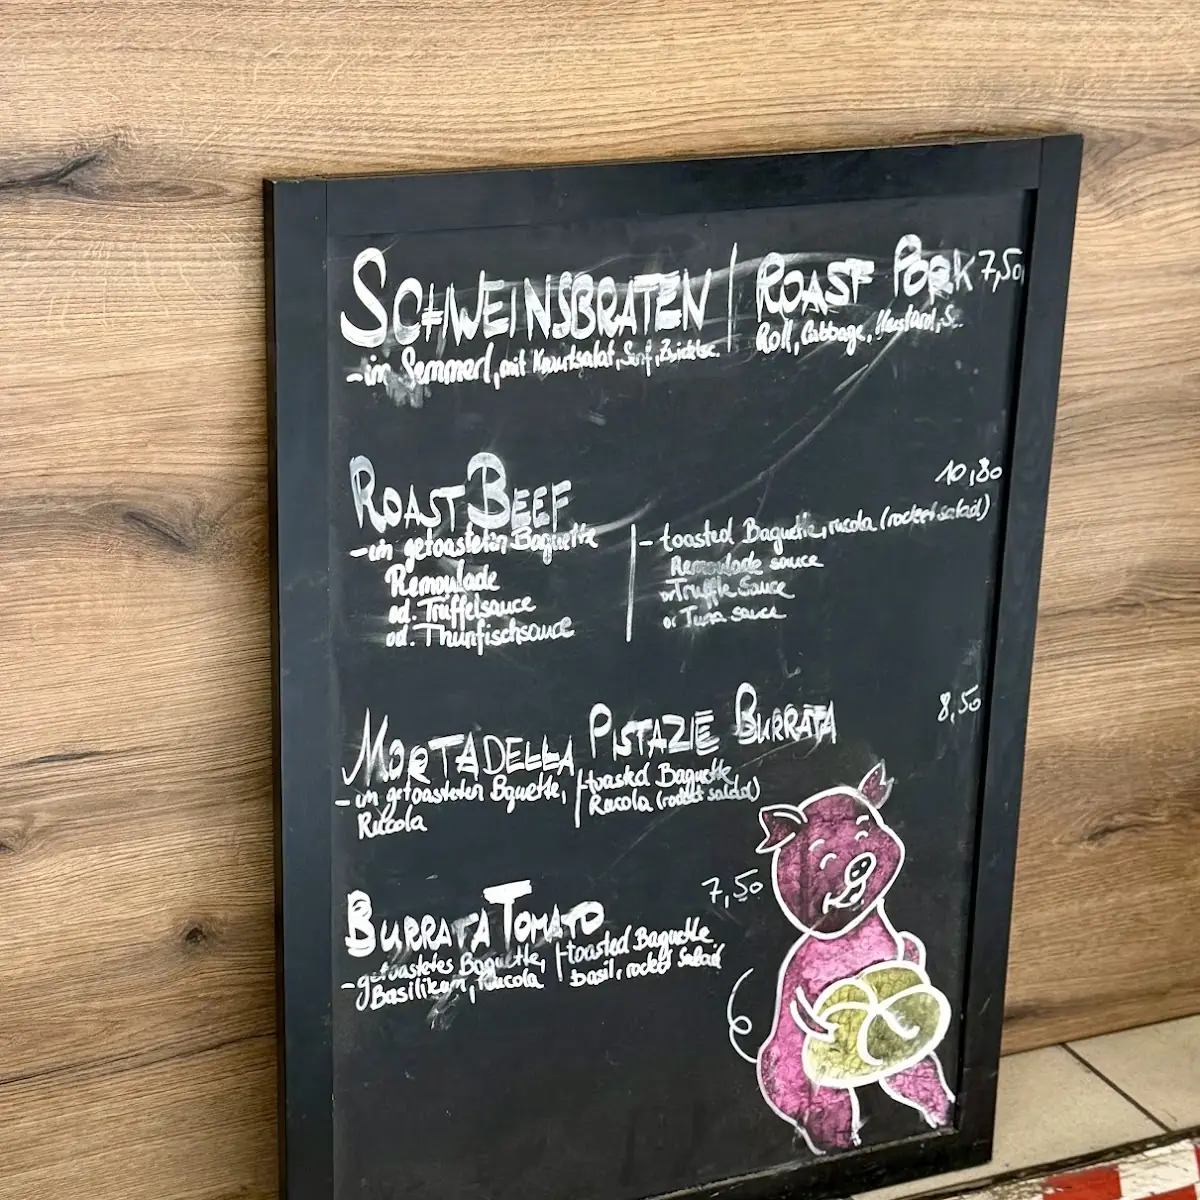 SCHWEINSBRATEN | ROAST PORK 7,50
- im Semmerl, mit Krautsalat, Senf,
Roll, Cabbage, Mustard, S..
ROAST BEEF
10,80
- im getoasteten Baguette
Remoulade
od. Trüffelsauce
od. Thunfischsauce
- toasted Baguette, rucola (rocket salad)
Remoulade sauce
or Truffle Sauce
or Tuna sauce
MORTADELLA PISTAZIE BURRATA
8,50
- im getoasteten Bguette,
Rucola
- toasted Baguette
Rucola (rocket salad)
BURRATA TOMATO
7,50
- getoastetes Baguette,
Basilikum, rucola
- toasted Baguette
basil, rocket salad